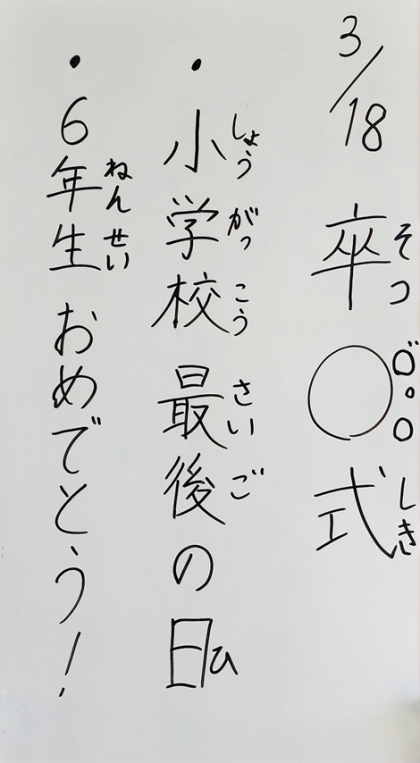 3/18 卒◯式
そつ ○゛。○ しき
・小学校最後の日
しょう がっ こう さい ご ひ
・6年生おめでとう!
ねん せい